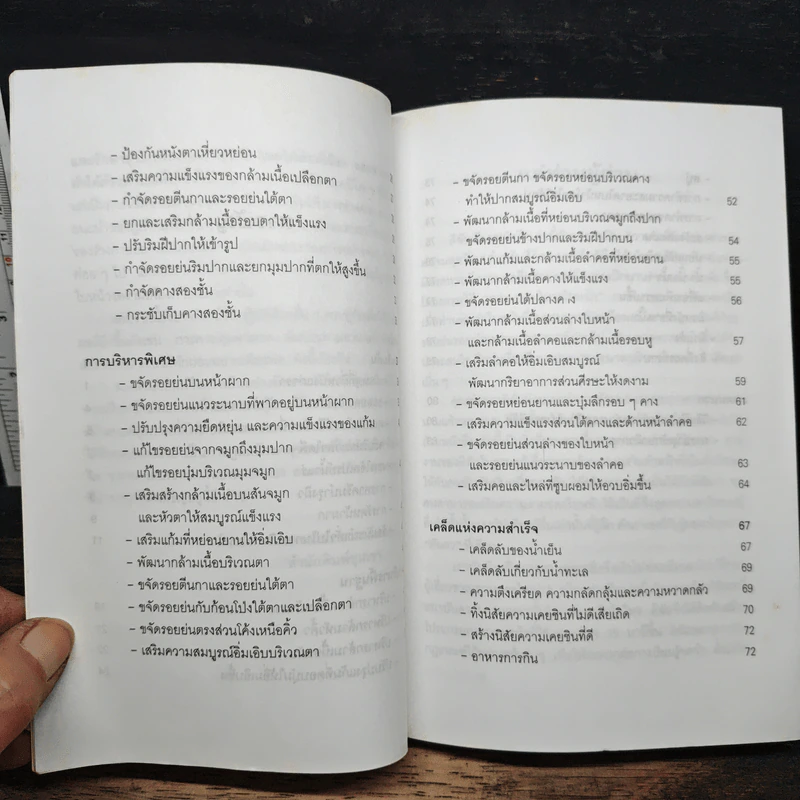 - ป้องกันหนังตาเหี่ยวหย่อน
- เสริมความแข็งแรงของกล้ามเนื้อเปลือกตา
- กำจัดรอยตีนกาและรอยย่นใต้ตา
- ยกและเสริมกล้ามเนื้อรอบตาให้แข็งแรง
- ปรับริมฝีปากให้เข้ารูป
- กำจัดรอยย่นริมปากและยกมุมปากที่ตกให้สูงขึ้น
- กำจัดคางสองชั้น
- กระชับเก็บคางสองชั้น
การบริหารพิเศษ
- ขจัดรอยย่นบนหน้าผาก
- ขจัดรอยย่นแนวระนาบที่พาดอยู่บนหน้าผาก
- ปรับปรุงความยืดหยุ่น และความแข็งแรงของแก้ม
- แก้ไขรอยย่นจากจมูกถึงมุมปาก
แก้ไขรอยบุ๋มบริเวณมุมจมูก
- เสริมสร้างกล้ามเนื้อบนสันจมูก
และหัวตาให้สมบูรณ์แข็งแรง
- เสริมแก้มที่หย่อนยานให้อิ่มเอิบ
- พัฒนากล้ามเนื้อบริเวณตา
- ขจัดรอยตีนกาและรอยย่นใต้ตา
- ขจัดรอยย่นกับก้อนโป่งใต้ตาและเปลือกตา
- ขจัดรอยย่นตรงส่วนโค้งเหนือคิ้ว
- เสริมความสมบูรณ์อิ่มเอิบบริเวณตา
- ขจัดรอยตีนกา ขจัดรอยหย่อนบริเวณคาง
ทำให้ปากสมบูรณ์อิ่มเอิบ 52
- พัฒนากล้ามเนื้อที่หย่อนบริเวณจมูกถึงปาก
ขจัดรอยย่นข้างปากและริมฝีปากบน 54
- พัฒนาแก้มและกล้ามเนื้อลำคอที่หย่อนยาน 55
- พัฒนากล้ามเนื้อคางให้แข็งแรง 55
- ขจัดรอยย่นใต้ปลางคาง 56
- พัฒนากล้ามเนื้อส่วนล่างใบหน้า
และกล้ามเนื้อลำคอและกล้ามเนื้อรอบหู 57
- เสริมลำคอให้อิ่มเอิบสมบูรณ์
พัฒนากริยาอาการส่วนศีรษะให้งดงาม 59
- ขจัดรอยหย่อนยานและบุ๋มลึกรอบ ๆ คาง 61
- เสริมความแข็งแรงส่วนใต้คางและด้านหน้าลำคอ 62
- ขจัดรอยย่นส่วนล่างของใบหน้า
และรอยย่นแนวระนาบของลำคอ 63
- เสริมคอและไหล่ที่ซูบผอมให้อวบอิ่มขึ้น 64
เคล็ดแห่งความสำเร็จ 67
- เคล็ดลับของน้ำเย็น 67
- เคล็ดลับเกี่ยวกับน้ำทะเล 69
- ความตึงเครียด ความกลัดกลุ้มและความหวาดกลัว 69
- ทิ้งนิสัยความเคยชินที่ไม่ดีเสียเถิด 70
- สร้างนิสัยความเคยชินที่ดี 72
- อาหารการกิน 72